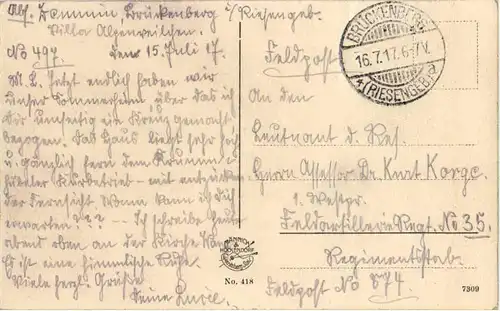 Abs. Brückenberg i/Riesengeb.
Villa
No 497. den 15. Juli 17.
M. L. Jetzt endlich haben wir
unser Sommerheim, über das ich
Dir umseitig ein Kreuz gemacht
bezogen. Das Haus liegt sehr hoch
u. gänzlich fern dem Krumm-
hübeler Kurbetrieb - mit entzücken-
der Fernsicht. Wann kann ich Dich
erwarten??? -- Ich schreibe heute
abend oben an der Kirche Wang.
Es ist eine himmlische Ruhe.
Viele herzl. Grüße
Deine
Feldpost
BRÜCKENBERG
16.7.17. 6-7V.
*(RIESENGEB.)*
An den
Leutnant d. Res.
Herrn Assessor Dr. Kurt Korge.
1. Westpr.
Feldartillerie Regt. No 35.
Regimentsstab.
Feldpost No 874.
No. 418
7309